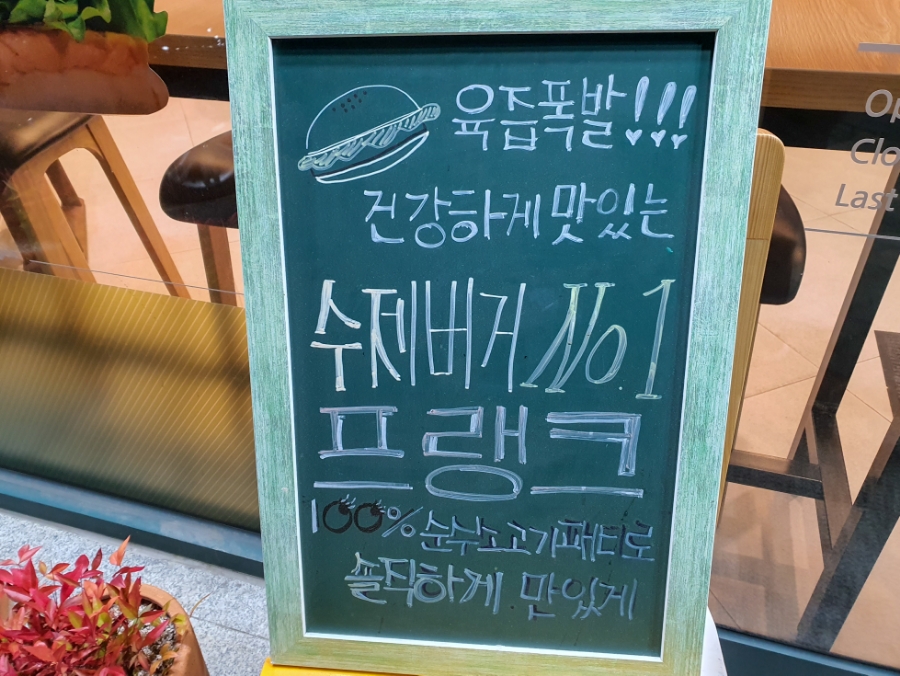 육즙폭발!!!
건강하게 맛있는
수제버거 No.1
프랭크
100% 순수소고기패티로
솔직하게 맛있게
Op
Clo
Last